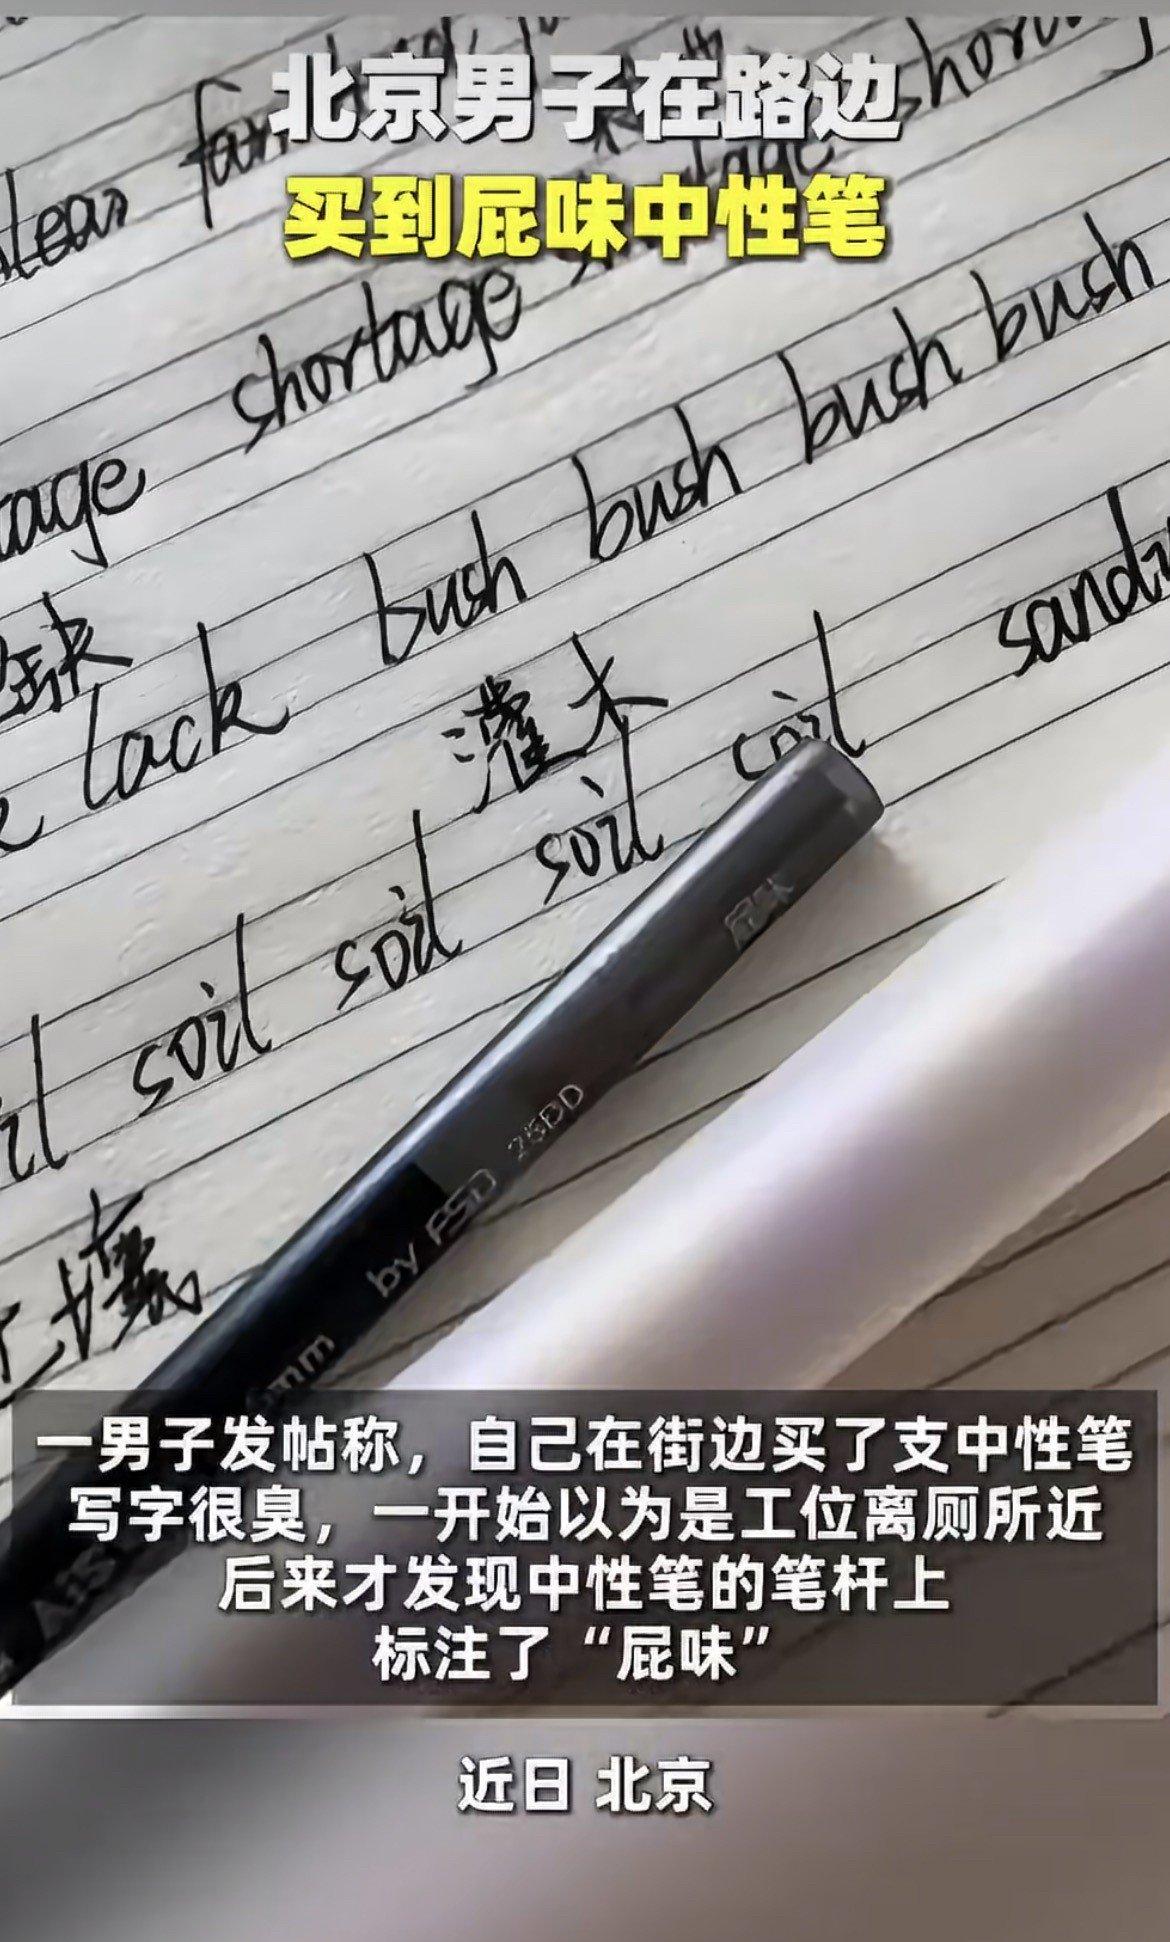 北京男子在路边
买到屁味中性笔
shortage
bush bush bush bush
lack
灌木
soil soil soil soil
屁味
by FSD 28DD
mm
一男子发帖称，自己在街边买了支中性笔
写字很臭，一开始以为是工位离厕所近
后来才发现中性笔的笔杆上
标注了“屁味”
近日 北京